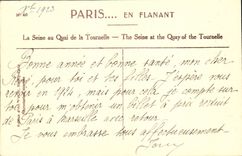 Xbre 1923
PARIS.... EN FLANANT
La Seine au Quai de la Tournelle — The Seine at the Quay of the Tournelle
Bonne année et bonne santé, mon cher
pour toi et les filles. J'espère vous
revoir en 1924, mais pour cela je compte sur
toi pour m'obtenir un billet à prix réduit
de Paris à Marseille avec retour.
Je vous embrasse tous affectueusement